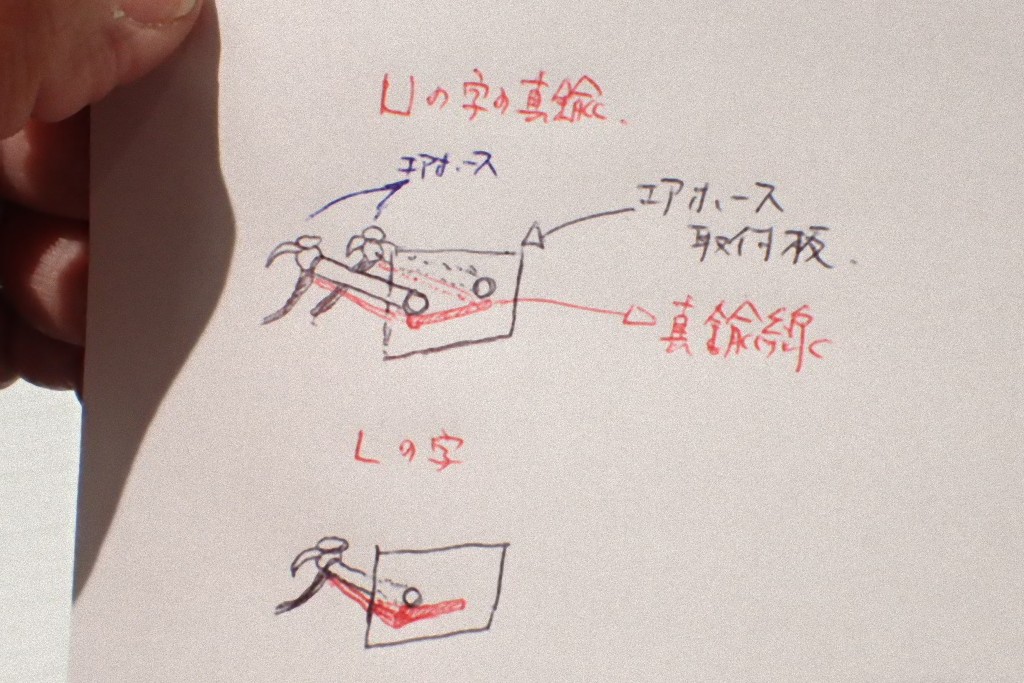 Uの字の真鍮.
エアホース
エアホース
取付板.
真鍮線
Lの字